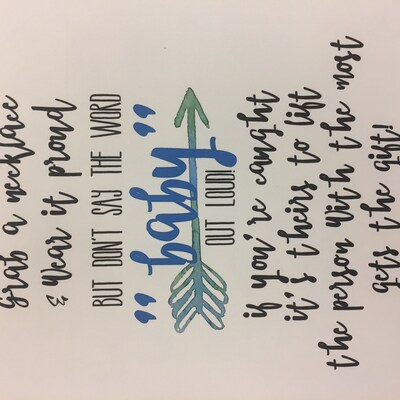 Grab a necklace
& Wear it proud
BUT DON'T SAY THE WORD
"baby"
OUT LOUD!
if you're caught
it's theirs to lift
the person with the most
gets the gift!